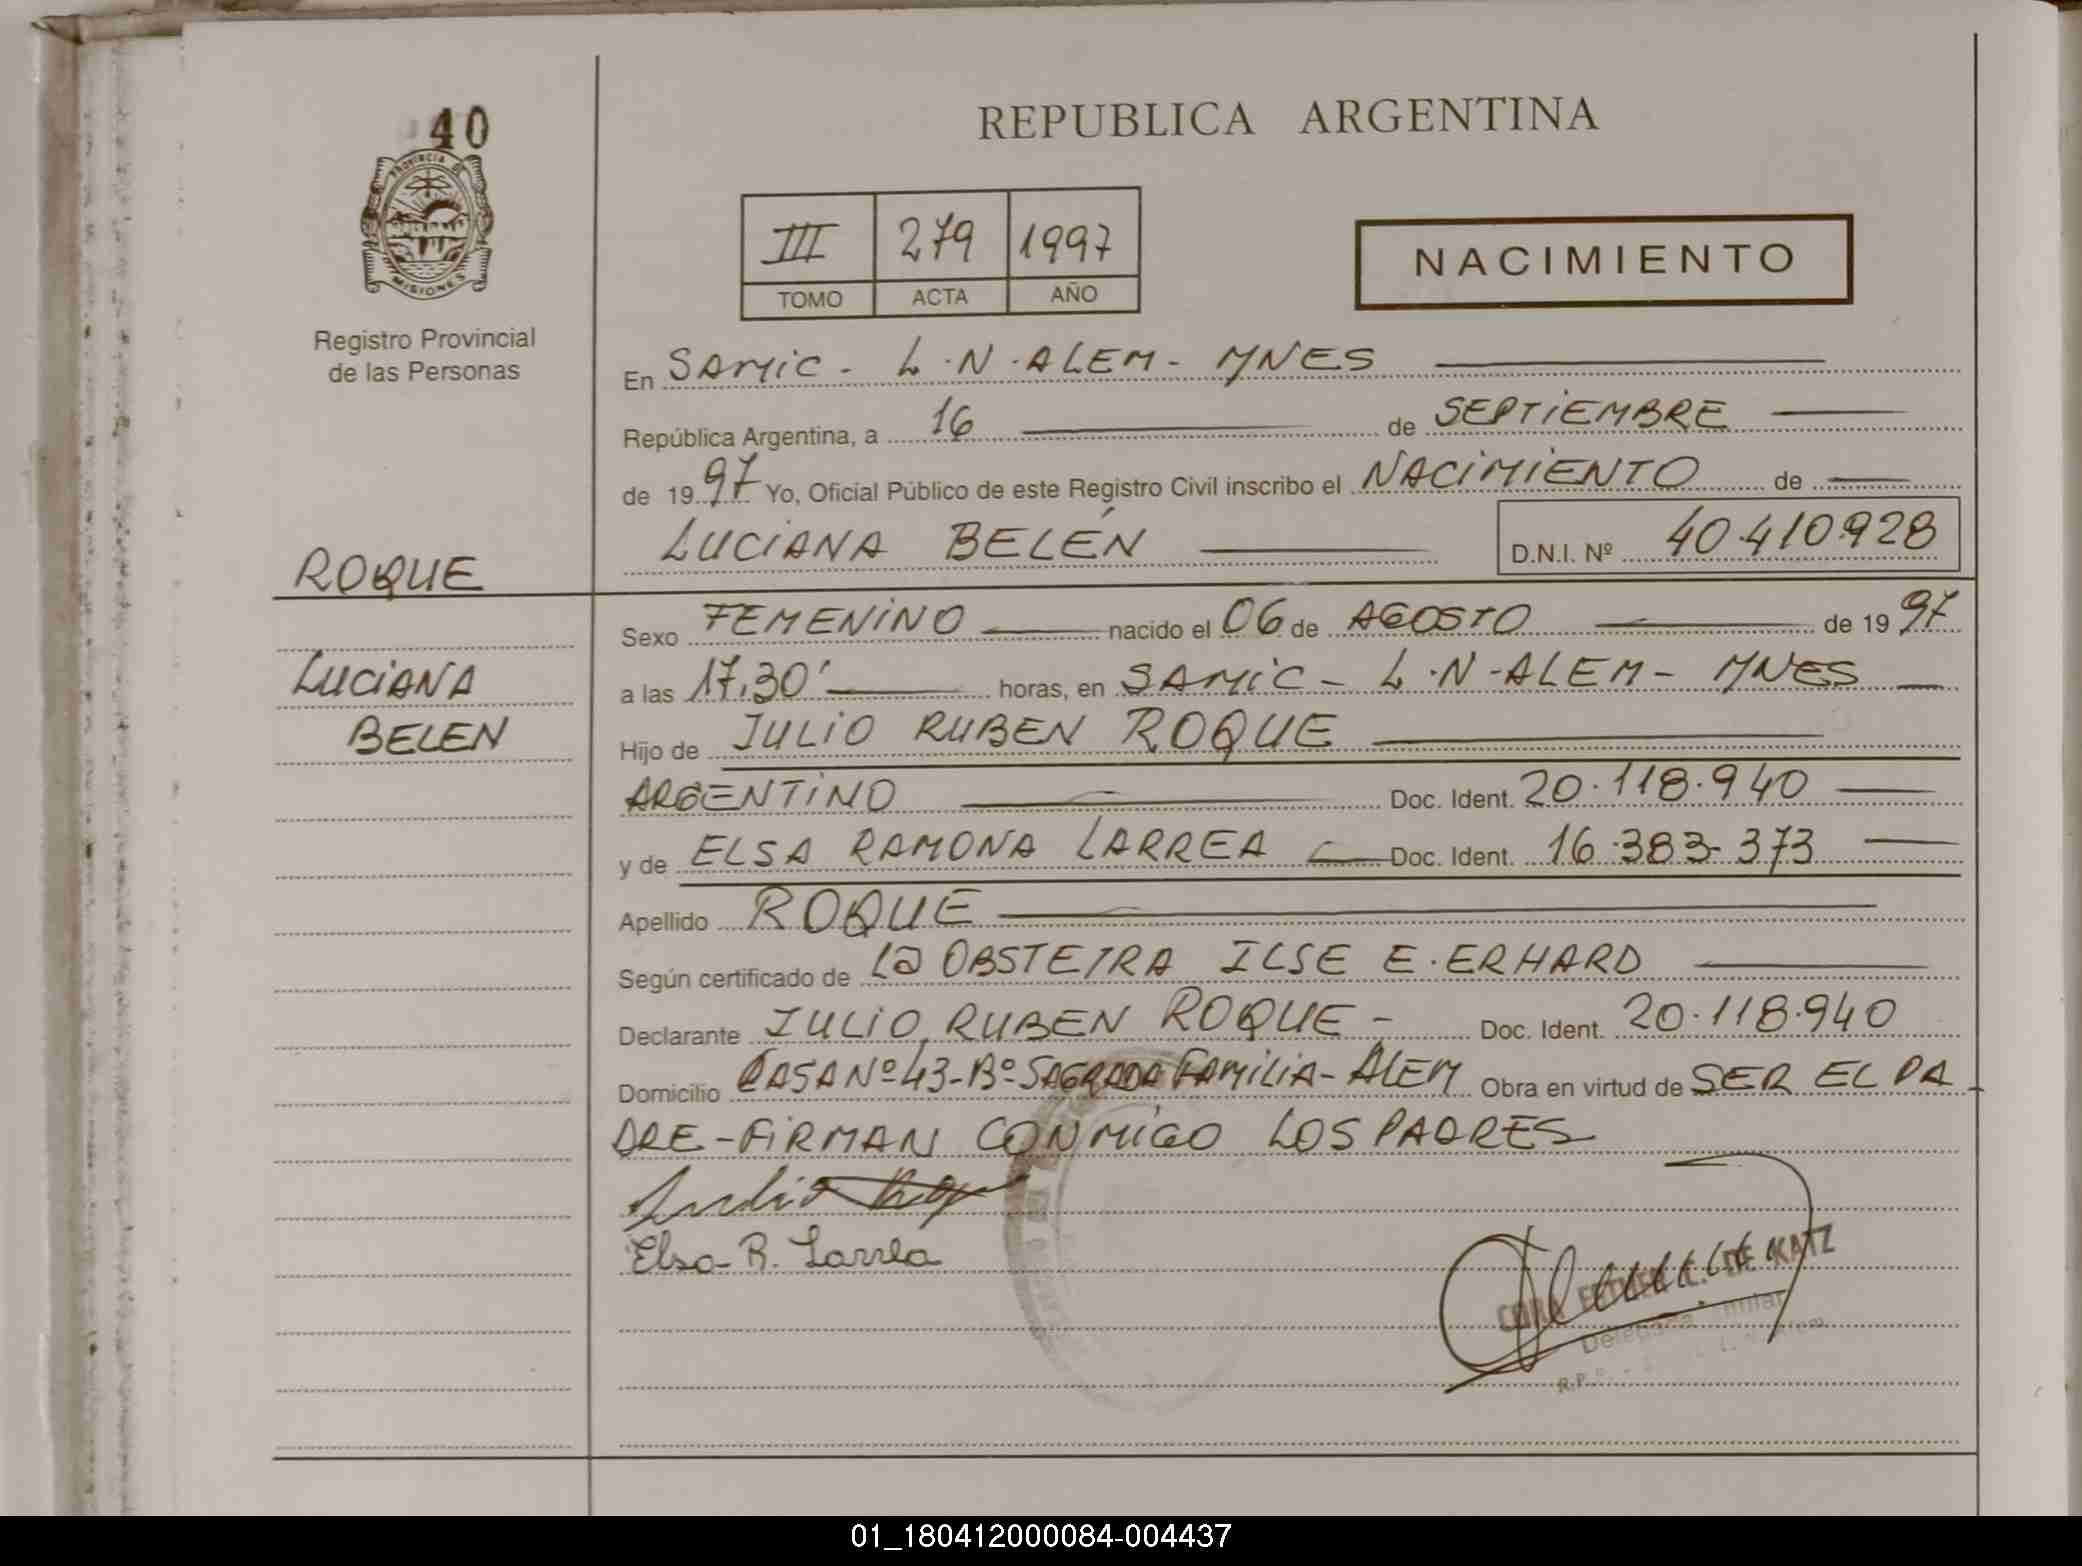 40
PROVINCIA DE
MISIONES
Registro Provincial
de las Personas
REPUBLICA ARGENTINA
III 279 1997
TOMO ACTA AÑO
NACIMIENTO
En SAMIC - L.N. ALEM - MNES
República Argentina, a 16 de SEPTIEMBRE
de 1997 Yo, Oficial Público de este Registro Civil inscribo el NACIMIENTO de
LUCIANA BELÉN D.N.I. Nº 40.410.928
ROQUE
LUCIANA
BELEN
Sexo FEMENINO nacido el 06 de AGOSTO de 1997
a las 17,30' horas, en SAMIC - L.N-ALEM - MNES
Hijo de JULIO RUBEN ROQUE
ARGENTINO Doc. Ident. 20.118.940
y de ELSA RAMONA LARREA Doc. Ident. 16.383.373
Apellido ROQUE
Según certificado de La OBSTETRA ILSE E. ERHARD
Declarante JULIO RUBEN ROQUE - Doc. Ident. 20.118.940
Domicilio CASA Nº 43-Bº SAGRADA FAMILIA - ALEM Obra en virtud de SER EL PA-
DRE - FIRMAN CONMIGO LOS PADRES
Julio Roque
Elsa R. Larrea
DE KATZ
Delegada Titular
01_180412000084-004437